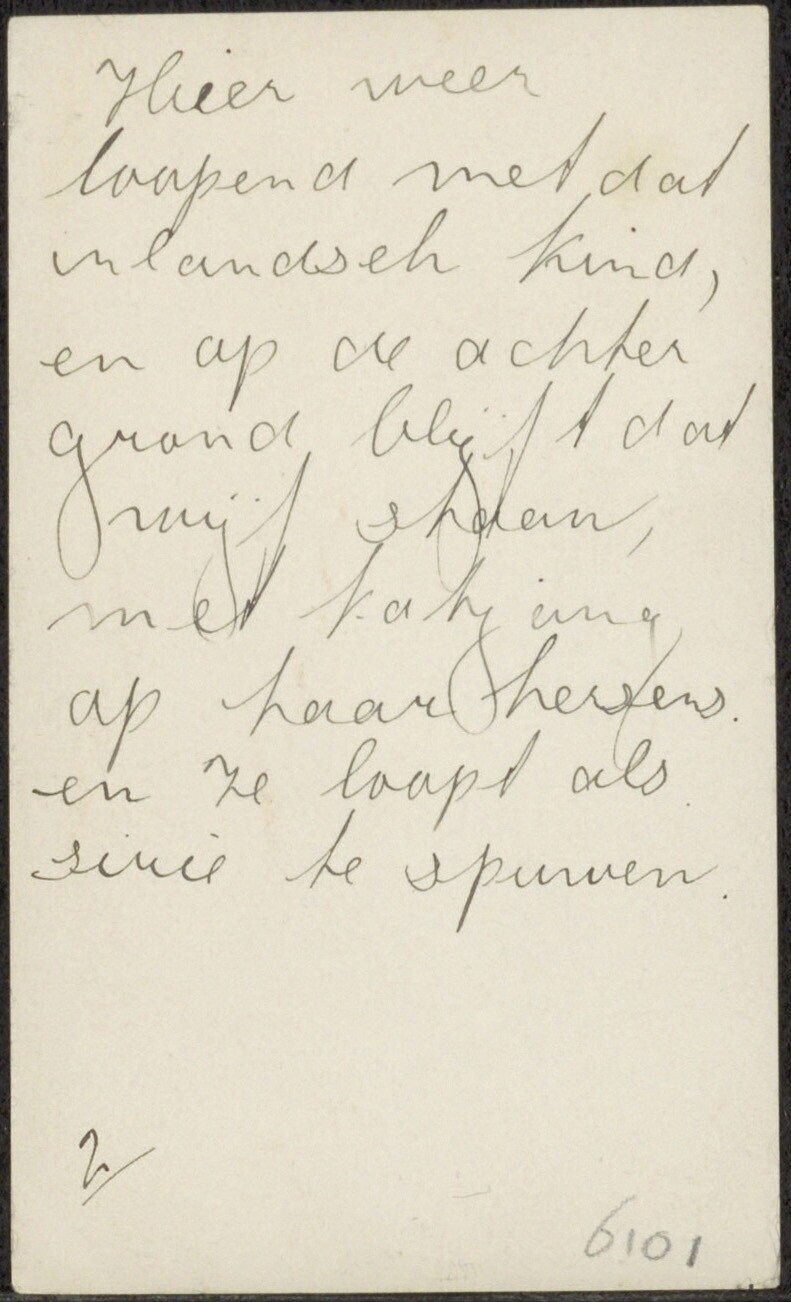 Hier weer
loopend met dat
inlandsch kind,
en op de achter
grond blijft dat
wijf staan,
met katjang
op haar hersens.
en ze loopt als
sirie te spuwen.
2/
6101